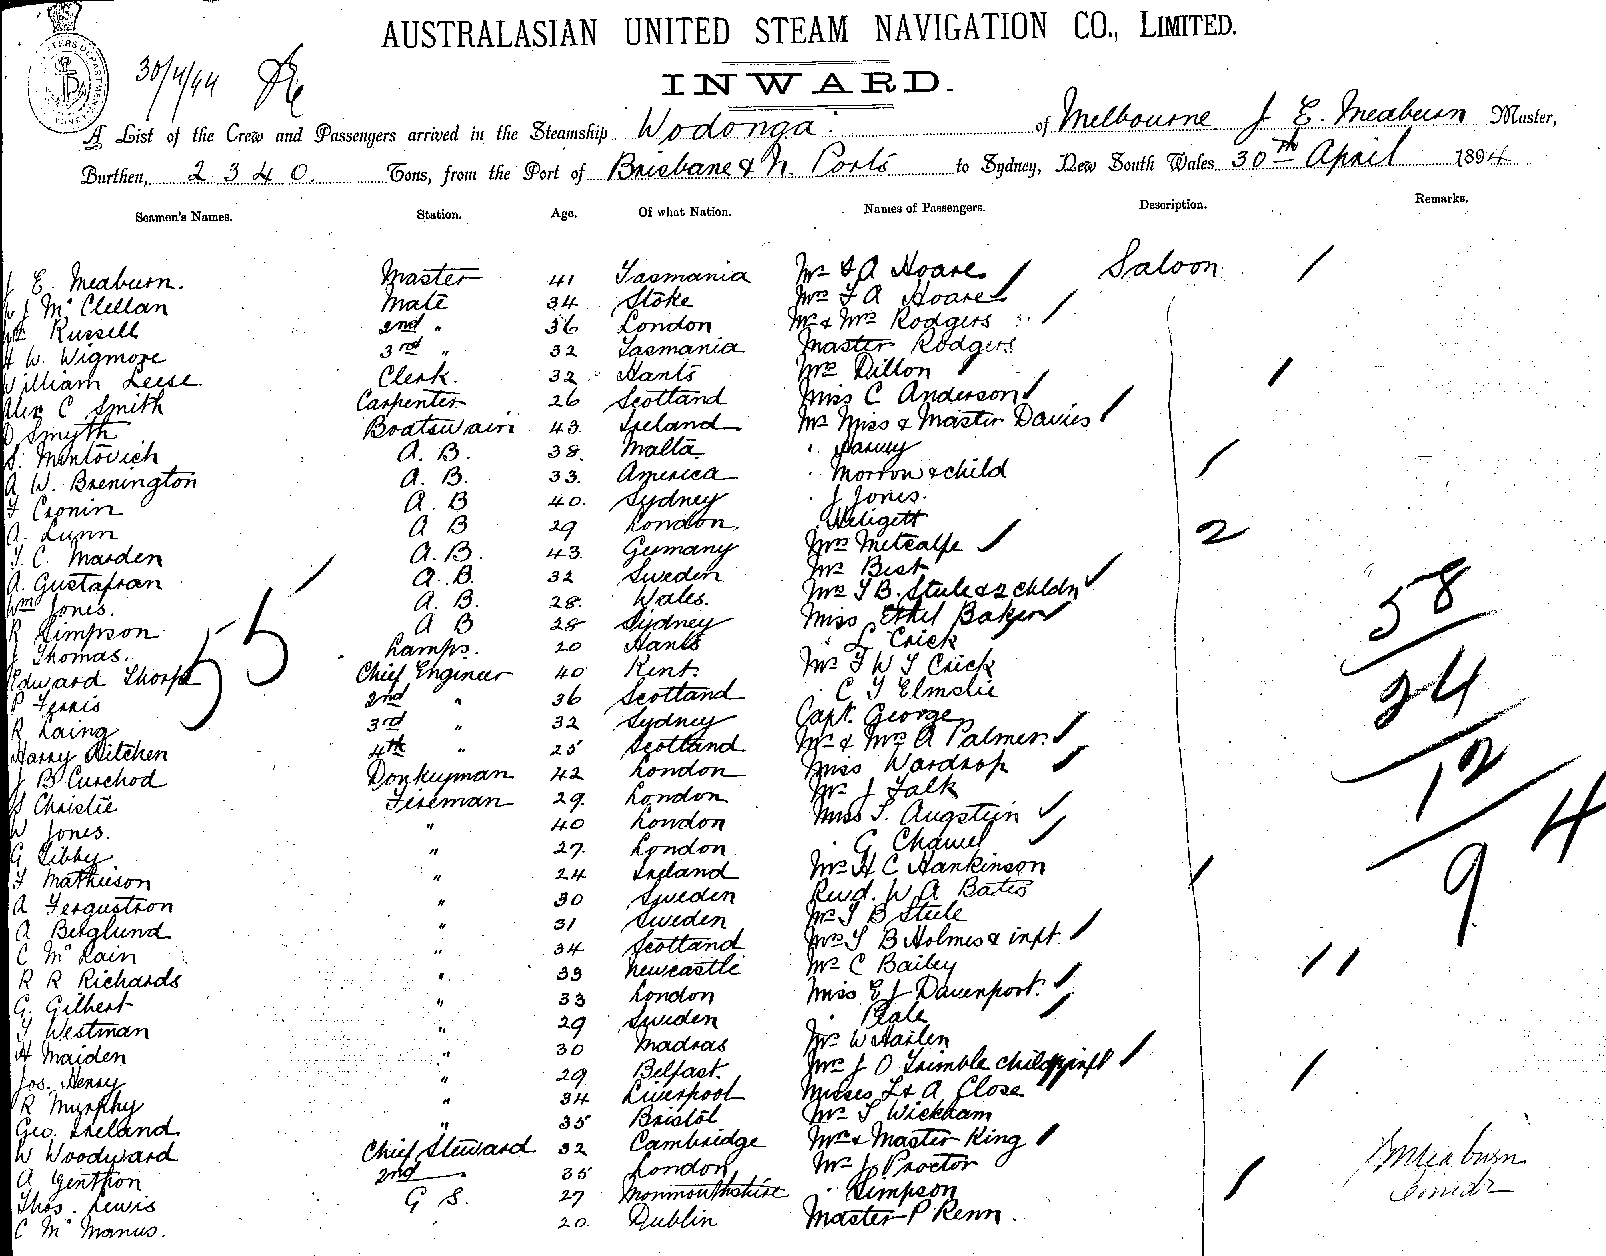 AUSTRALASIAN UNITED STEAM NAVIGATION CO., LIMITED.
30/4/94
INWARD.
A List of the Crew and Passengers arrived in the Steamship Wodonga of Melbourne J. E. Meaburn Master,
Burthen, 2340. Tons, from the Port of Brisbane & N. Ports to Sydney, New South Wales 30th April 1894
Seamen's Names. Station. Age. Of what Nation. Names of Passengers. Description. Remarks.
J E. Meaburn. Master 41 Tasmania Mr F A Hoare Saloon
J McClellan Mate 34 Stoke Mrs F A Hoare
Russell 2nd " 36 London Mr & Mrs Rodgers
H W. Wigmore 3rd " 32 Tasmania Master Rodgers
William Leese Clerk. 32 Hants Mrs Dillon
Alex C Smith Carpenter 26 Scotland Miss C Anderson
D Smyth Boatswain 43. Ireland Mr Miss & Master Davies
S. Mintovich A. B. 38. Malta Harvey
A W. Brenington A. B. 33. America Morrow & child
F Cronin A. B 40. Sydney J Jones.
A. Lunn A B 29 London.
T. C. Marden A. B. 43. Germany Mrs Metcalfe 2
A. Gustafson A. B. 32 Sweden Mr Best
Wm Jones. A. B. 28. Wales. Mrs T B. Steele & 2 chldn 58
R Simpson A B 28 Sydney Miss Ethel Baker
J Thomas. Lamps. 20 Hants " L Crick
55
Edward Thorpe Chief Engineer 40 Kent. Mr F W T Crick
P Ferris 2nd " 36 Scotland " C T Elmslie 24
R Laing 3rd " 32 Sydney Capt. George
Harry Hitchen 4th " 25 Scotland Mr & Mrs A Palmer.
J B Curchod Donkeyman 42 London Miss Wardrop 12
J Christie Fireman 29. London Mr J Falk
W Jones. " 40 London Miss T. Augstein
G Libby " 27. London " G Chavel 94
F Mathieson " 24 Ireland Mr H C Hankinson
A Fergustron " 30 Sweden Revd. W A Bates
A Berglund " 31 Sweden Mr T B Steele
C McLain " 34 Scotland Mrs T B Holmes & inft.
R R Richards " 33 Newcastle Mr C Bailey
G. Gilbert " 33 London Miss E J Davenport.
T Westman " 29 Sweden
H Maiden " 30 Madras Mr W Harlen
Jos. Henry " 29 Belfast. Mrs J O Trimble child & inft
R Murphy " 34 Liverpool Misses L & A Close
Geo. Ireland " 35 Bristol Mr T Wickham
W Woodward Chief Steward 32 Cambridge Mrs & Master King
A Genthon 2nd " 35 London Mr J. Proctor
Thos. Lewis G S. 27 Monmouthshire " Simpson
C McManus. 20. Dublin Master P Renn.
J E Meaburn